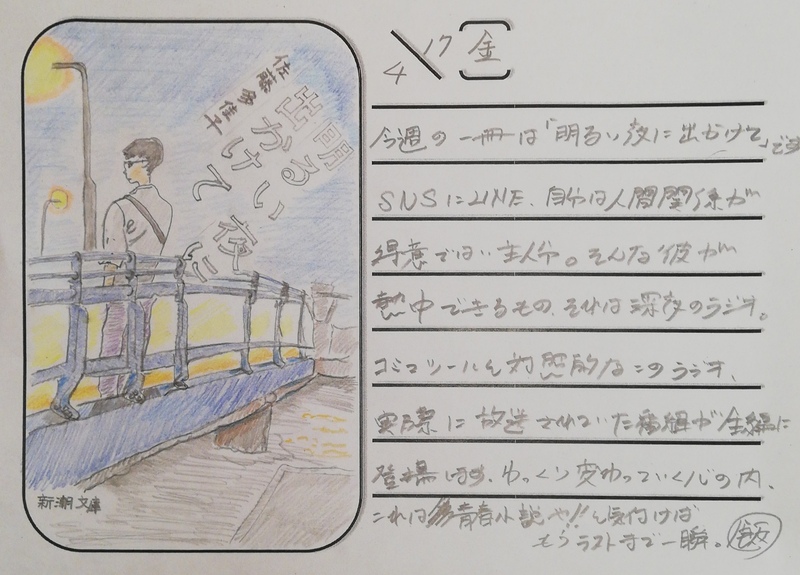 佐藤多佳子
明るい夜に
出かけて
新潮文庫
4/17 金
今週の一冊は「明るい夜に出かけて」です
SNSにLINE、自分は人間関係が
得意ではい主人公。そんな彼が
熱中できるもの、それは深夜のラジオ。
コミュツールと対照的なこのラジオ、
実際に放送されていた番組が全編に
登場します、ゆっくり変わっていく心の内、
これは青春小説や!!と気付けば
もうラストまで一瞬。